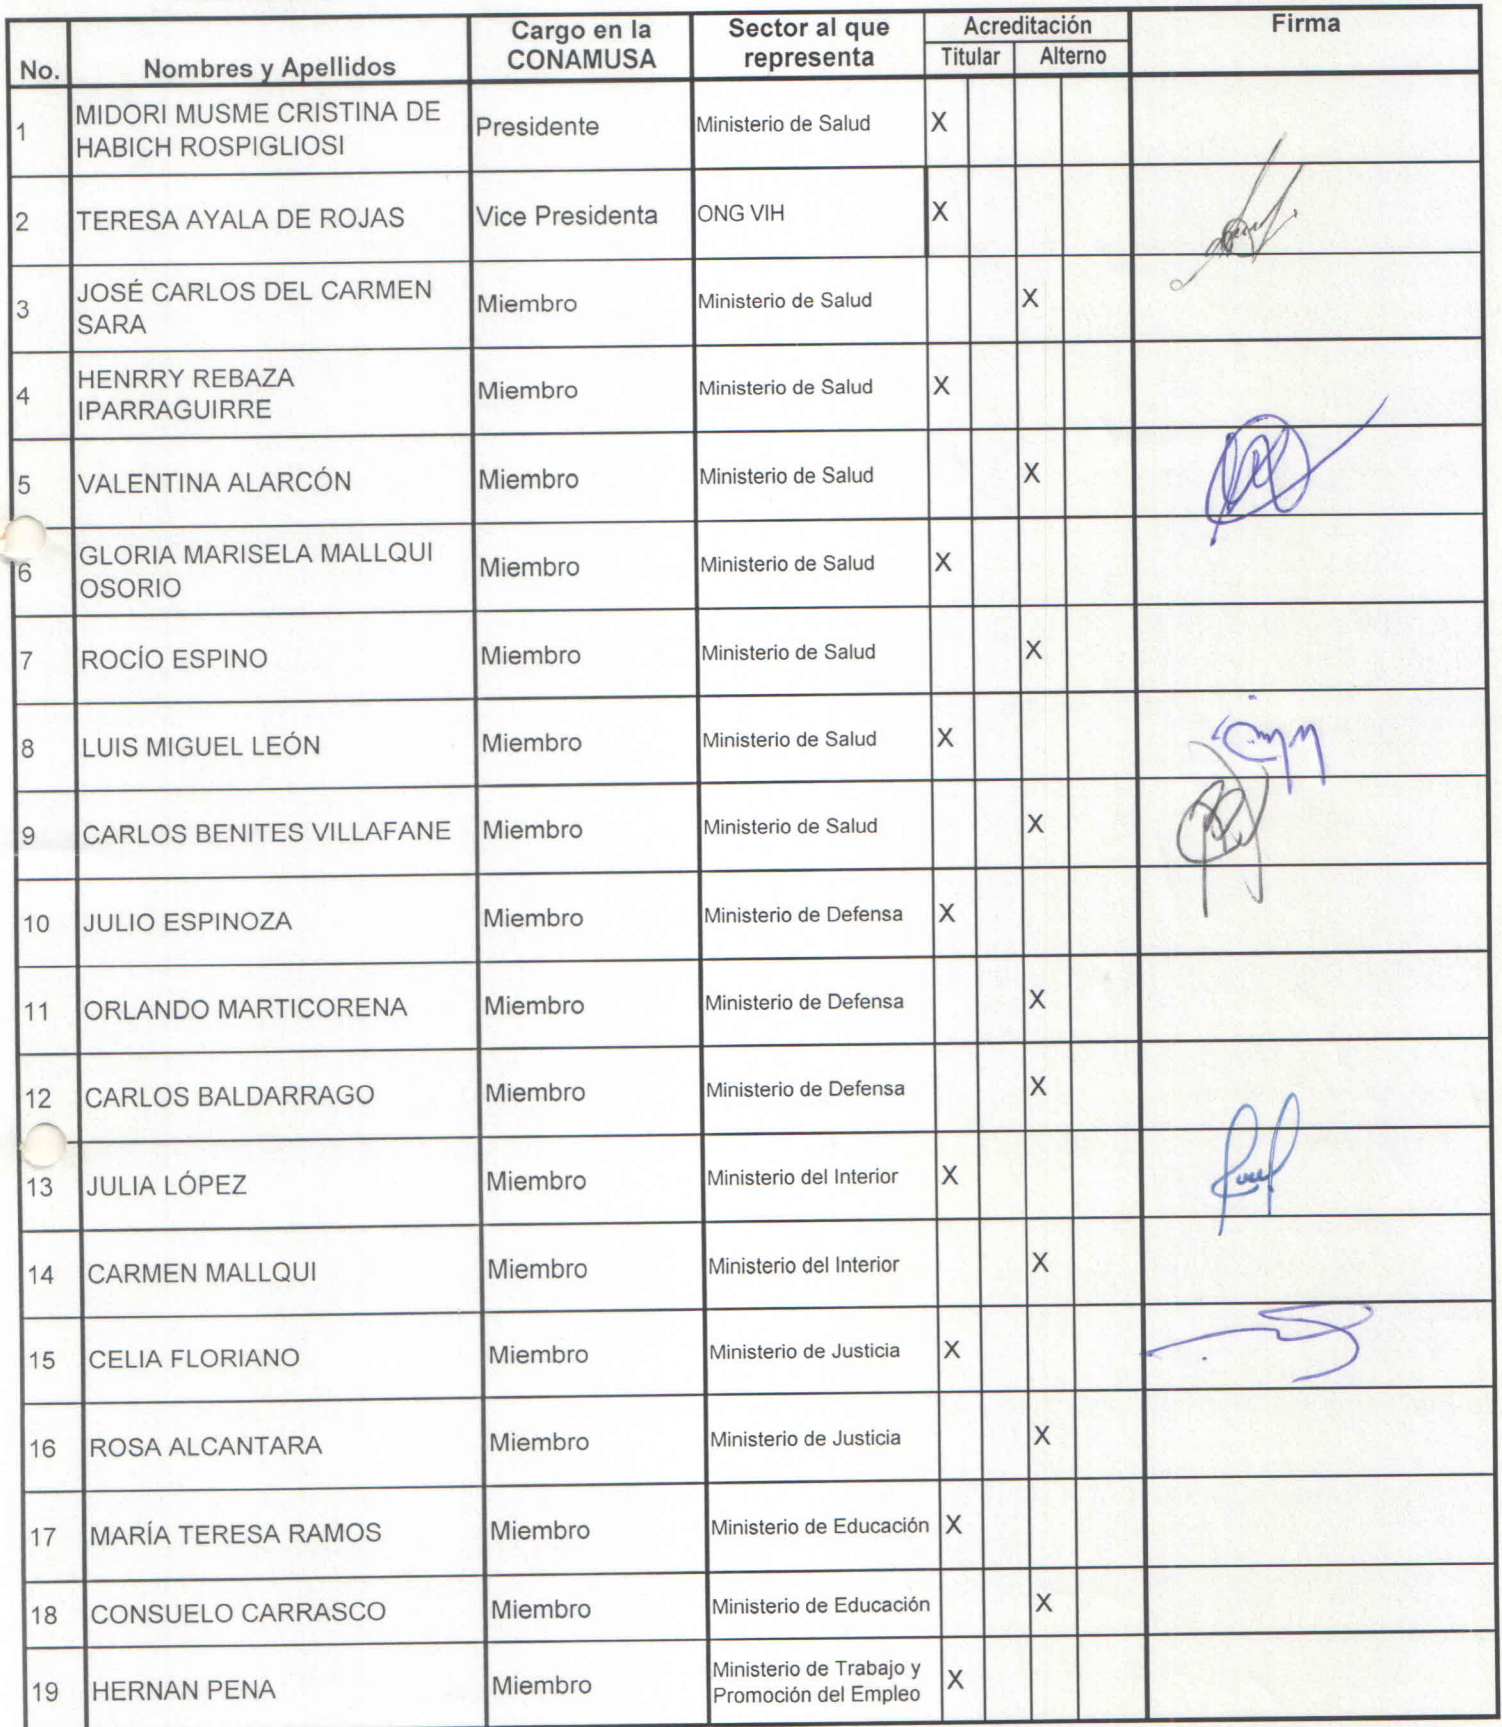 No. Nombres y Apellidos Cargo en la CONAMUSA Sector al que representa Acreditación Titular Alterno Firma
1 MIDORI MUSME CRISTINA DE HABICH ROSPIGLIOSI Presidente Ministerio de Salud X
2 TERESA AYALA DE ROJAS Vice Presidenta ONG VIH X
3 JOSÉ CARLOS DEL CARMEN SARA Miembro Ministerio de Salud X
4 HENRRY REBAZA IPARRAGUIRRE Miembro Ministerio de Salud X
5 VALENTINA ALARCÓN Miembro Ministerio de Salud X
6 GLORIA MARISELA MALLQUI OSORIO Miembro Ministerio de Salud X
7 ROCÍO ESPINO Miembro Ministerio de Salud X
8 LUIS MIGUEL LEÓN Miembro Ministerio de Salud X
9 CARLOS BENITES VILLAFANE Miembro Ministerio de Salud X
10 JULIO ESPINOZA Miembro Ministerio de Defensa X
11 ORLANDO MARTICORENA Miembro Ministerio de Defensa X
12 CARLOS BALDARRAGO Miembro Ministerio de Defensa X
13 JULIA LÓPEZ Miembro Ministerio del Interior X
14 CARMEN MALLQUI Miembro Ministerio del Interior X
15 CELIA FLORIANO Miembro Ministerio de Justicia X
16 ROSA ALCANTARA Miembro Ministerio de Justicia X
17 MARÍA TERESA RAMOS Miembro Ministerio de Educación X
18 CONSUELO CARRASCO Miembro Ministerio de Educación X
19 HERNAN PENA Miembro Ministerio de Trabajo y Promoción del Empleo X